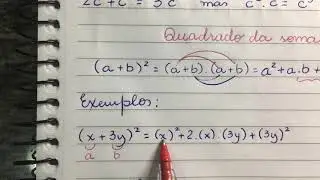 2c + c = 3c mas c . c = c
Quadrado da soma
(a+b)² = (a+b).(a+b) = a² + a.b +
Exemplos:
(x + 3y)² = (x)² + 2.(x).(3y) + (3y)²
a b